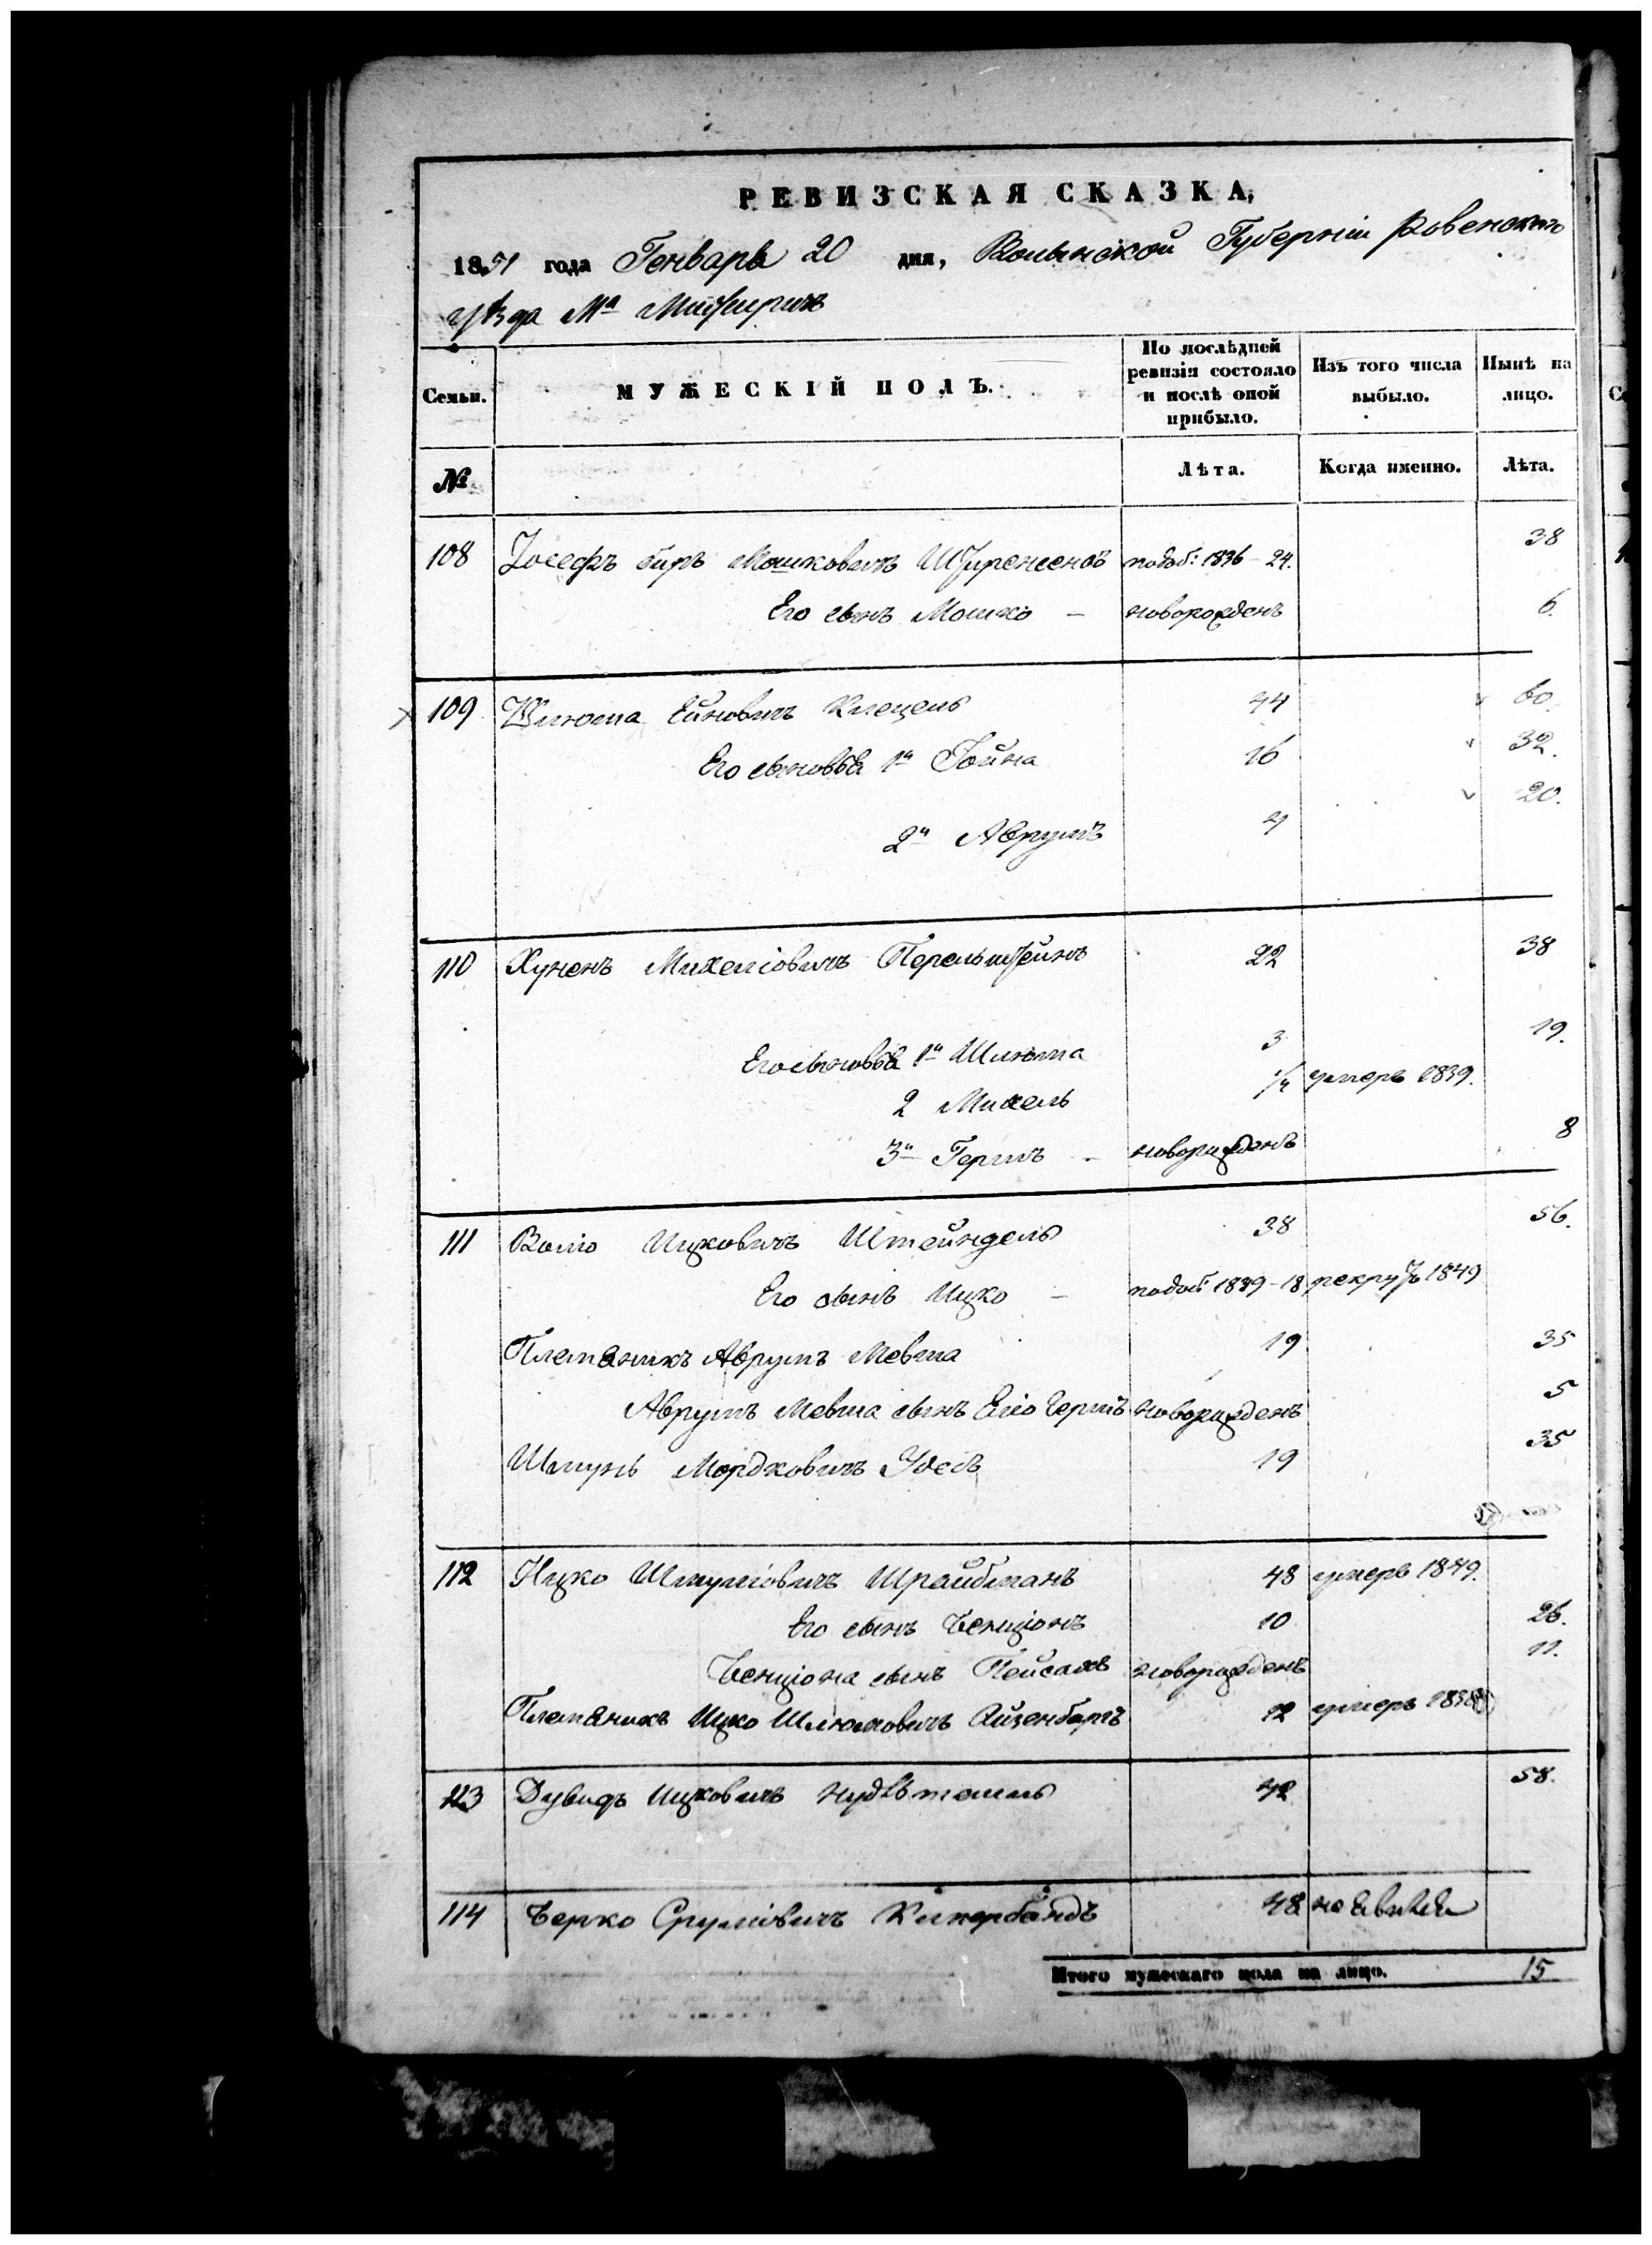 РЕВИЗСКАЯ СКАЗКА,
1851 года Генваря 20 дня, Волынской Губерніи Ровенскаго
уѣзда Мª Межиричъ
Семьи.
МУЖЕСКІЙ ПОЛЪ.
По послѣдней ревизія состояло и послѣ оной прибыло.
Изъ того числа выбыло.
Нынѣ на лицо.
№
Лѣта.
Когда именно.
Лѣта.
108 Іосефъ Беръ Мошковичъ 1836 – 24. 38
Его сынъ Мошко – новорожденъ 6.
109 Шлюма Ейновичъ Клецель 44 60.
Его сыновья 1й Гойна 16 32.
2й Аврумъ 4 20.
110 Хуненъ Михелювичъ Перельштейнъ 22 38
Его сыновья 1й Шлюма 3 19.
2 Михель 1/4 умеръ 1839.
3й Гершъ – новорожденъ 8
111 Волько Ицковичъ Штейндель 38 56.
Его сынъ Ицко – 1839 – 18 рекрутъ 1849
Племяникъ Аврумъ Мевша 19 35
Аврумъ Мевша сынъ Его Гершъ новорожденъ 5
Шмунь Мордковичъ 19 35
112 Ицко Шмулювичъ Шрайбманъ 48 умеръ 1849.
Его сынъ Бенціонъ 10 26.
Бенціона сынъ Пейсахъ новорожденъ 11.
Племяникъ Ицко Шлюмовичъ Айзенбергъ 12 умеръ 1838
113 Дувидъ Ицковичъ 42 58.
114 Берко Срулювичъ 48 не явился
Итого мужескаго пола на лицо. 15